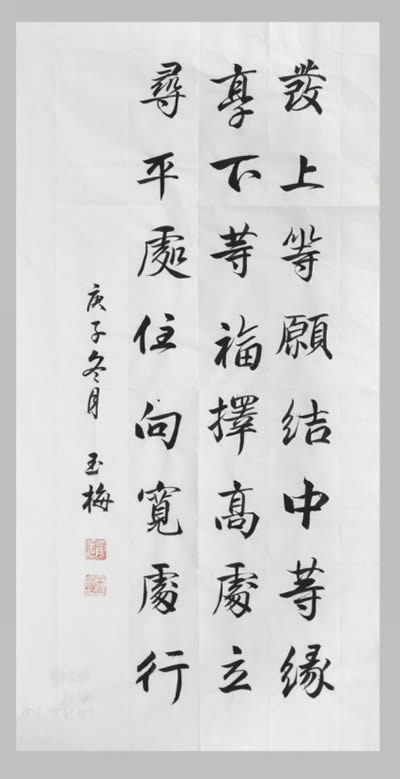 發上等願結中等緣
享下等福擇高處立
尋平處住向寬處行
庚子冬月 玉梅